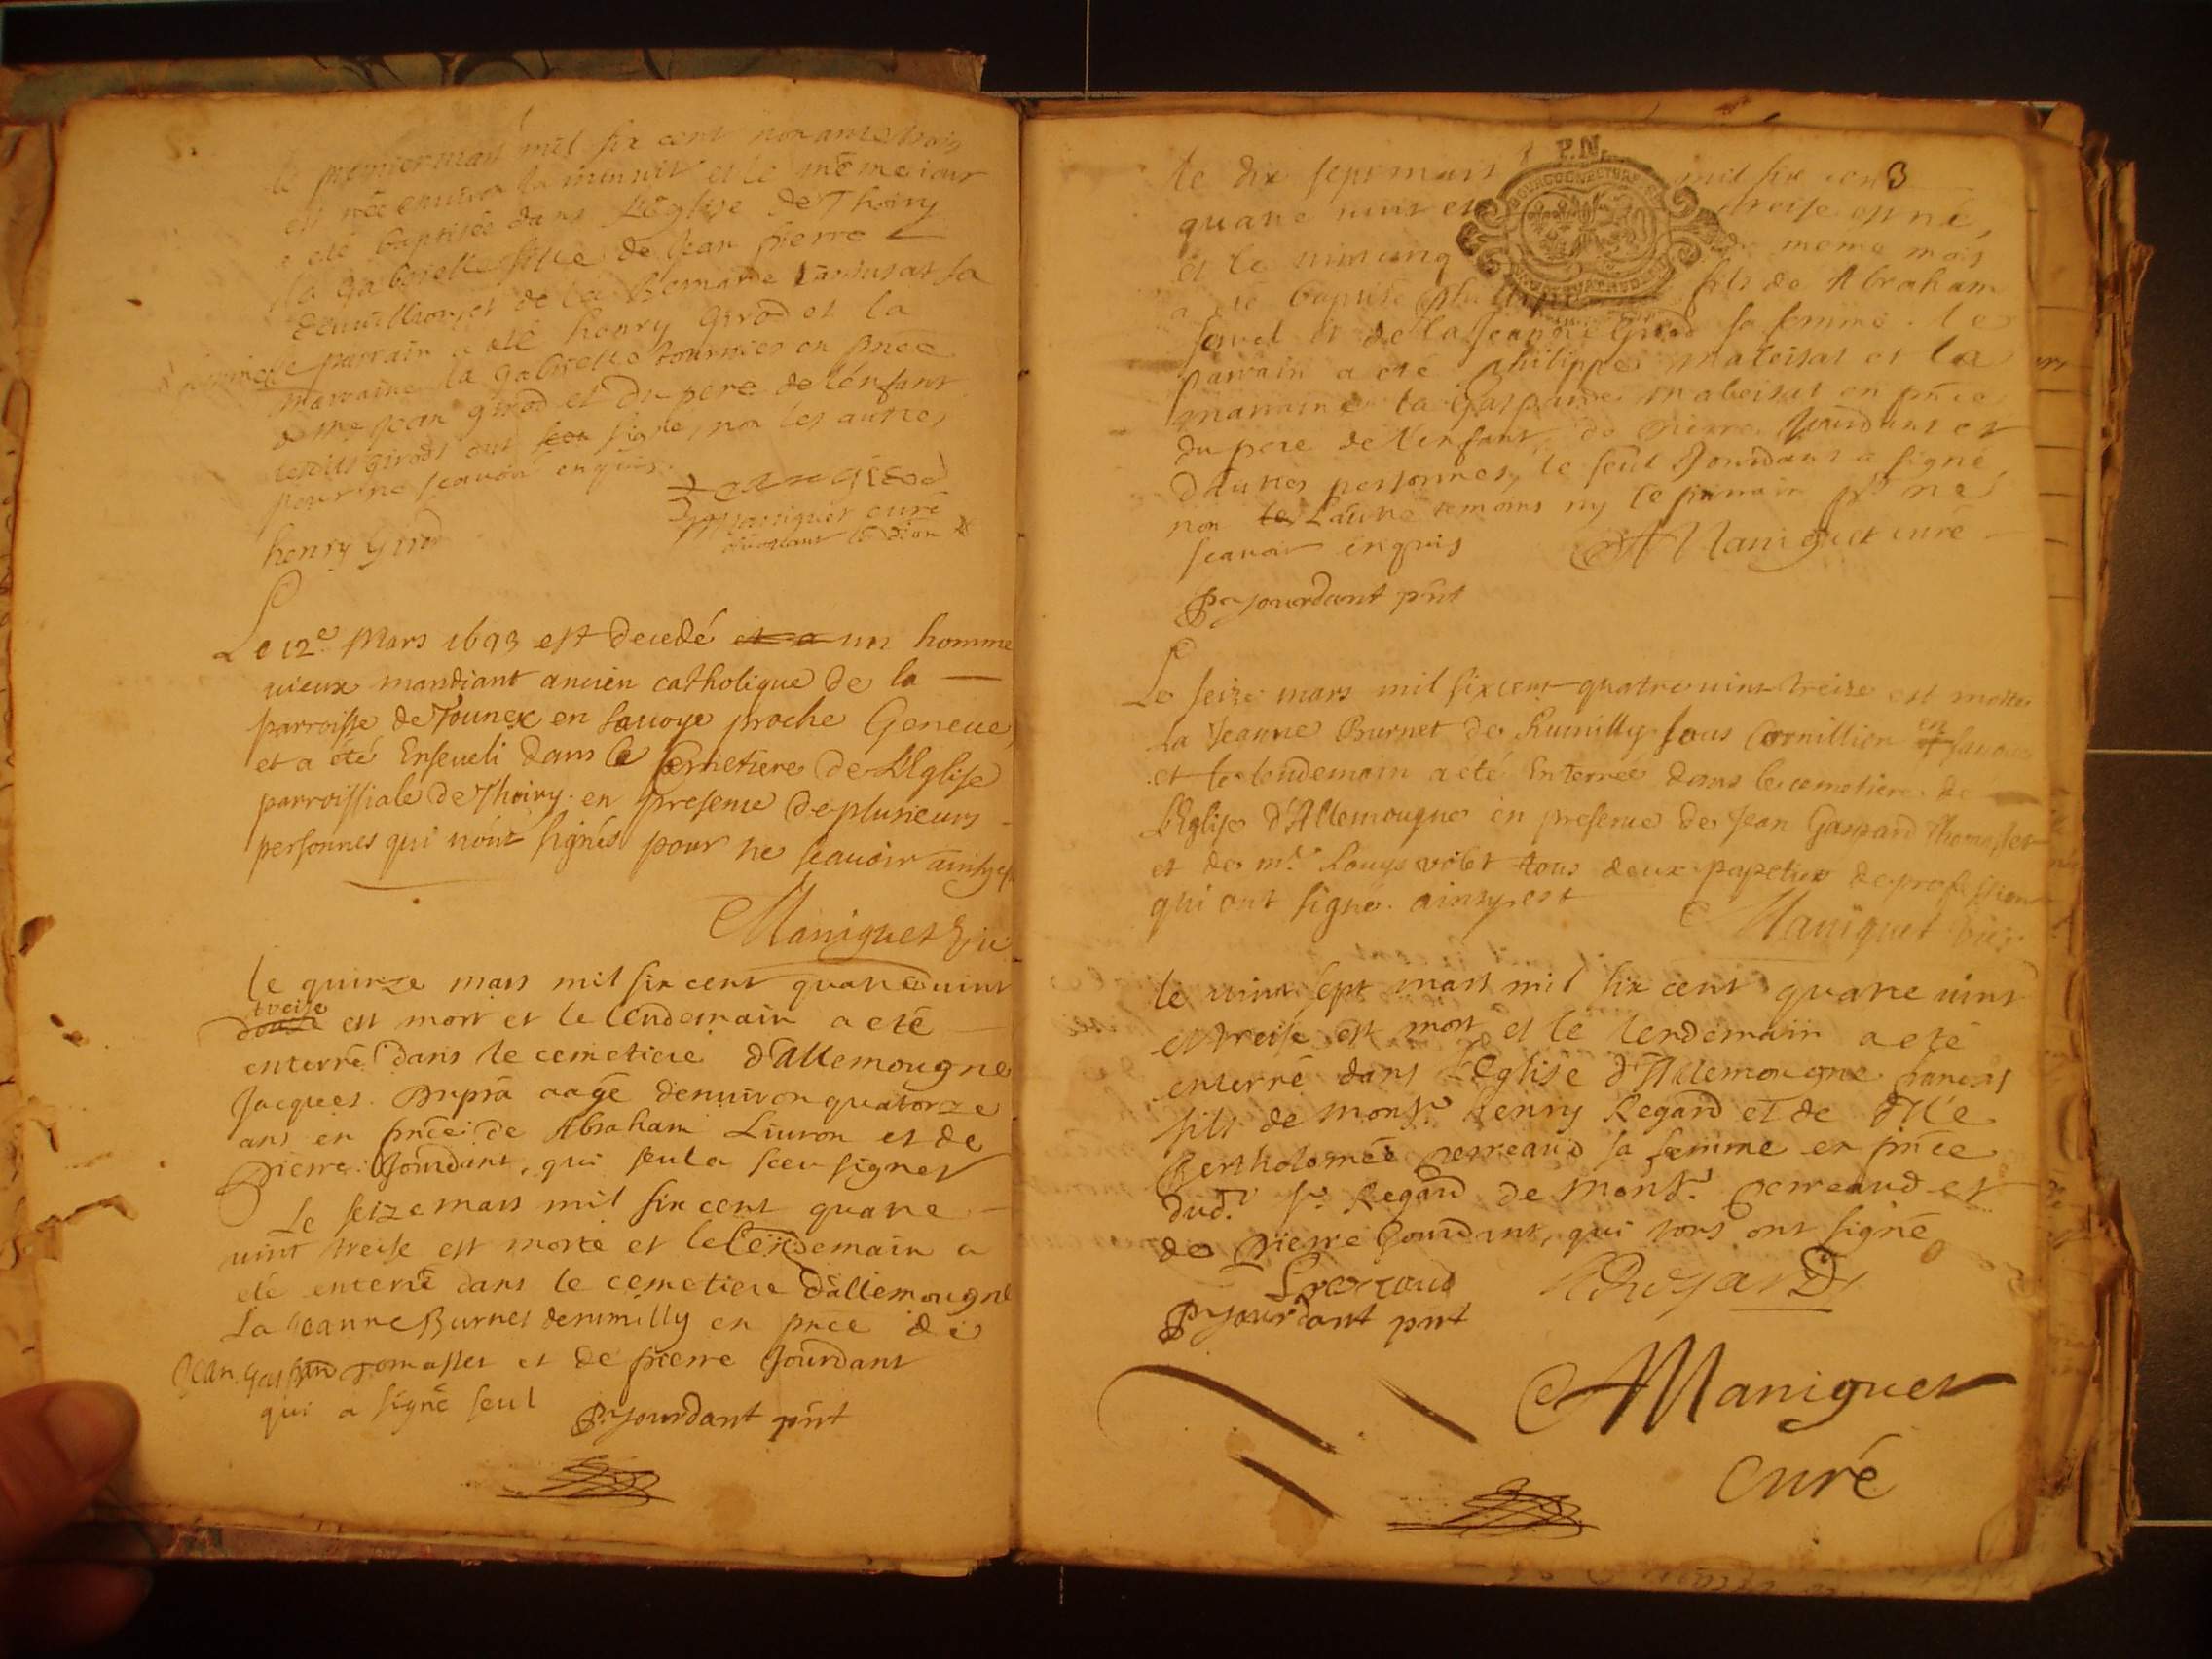 le premier mars mil six cent nonante trois
est née environ la minuit et le même iour
a été baptisée dans l'Eglise de Thoiry
la gabrielle fille de Jean pierre
et de la Bernarde sa
femme le parrain a été henry girod et la
marraine la gabrielle tournier en pnce
de me Jean girod et du pere de l'enfant
lesdits girods ont sceu signe, non les autres
pour ne scavoir enquis
Jean girod
Maniguet curé
henry Girod
Le 12e Mars 1693 est decedé et a un homme
vieux mandiant ancien catholique de la
parroisse de Tounex en Savoye proche Geneve,
et a été Enseveli dans le semetiere de L'Eglise
parroissiale de Thoiry en presence de plusieurs
personnes qui n'ont signés pour ne scavoir ainsy est
Maniguet vic
le quinze mars mil six cent quatre vint
treise
douze est mort et le lendemain a eté
enterré dans le cemetiere d'Allemougne
Jacques Dupra aagé denuiron quatorze
ans en pnce de Abraham Liuron et de
Pierre Jourdant, qui seul a sceu signer
Le seize mars mil six cent quatre
vint treise est morte et le lendemain a
eté enterré dans le cemetiere d'allemougne
La Jeanne Burnet de rumilly en pnce de
Jean gaspard tomasset et de pierre Jourdant
qui a signé seul
P Jourdant pnt
P.N.
3
le dix sept mars mil six cent
quatre vint et treise est né,
et le vint cinq même mois
a été baptisé fils de Abraham
et de la Jeanne Girod sa femme. le
parrain a été Philippe Maleisat et la
marraine la Gasparde Maleisat en pnce
du pere de l'enfant, de Pierre Jourdant et
d'autres personnes, le seul Jourdant a signé,
non le L'autre temoins ny le parrain pr ne
scavoir enquis
Maniguet curé
P Jourdant pnt
Le seize mars mil six cent quatre vint treize est morte
La Jeanne Burnet de Rumilly sous Cornillion en Savoye
et le lendemain a été Enterrée dans le cemetiere de
L'Eglise d'Allemougne en presence de Jean Gaspard Thomasset
et de mr. Louys volet tous deux papetier de profession
qui ont signé. ainsy est
Maniguet vic.
le vint sept mars mil six cent quatre vint
et treise est mort et le lendemain a eté
enterré dans l'Eglise d'Allemougne francois
fils de monsr. henry Regard et de Dlle
Bertholomée perreaud sa femme en pnce
dud. sr Regard de monsr. perreaud et
de Pierre Jourdant, qui tous ont signé
Perraud
Regard
P Jourdant pnt
Maniguet
Curé